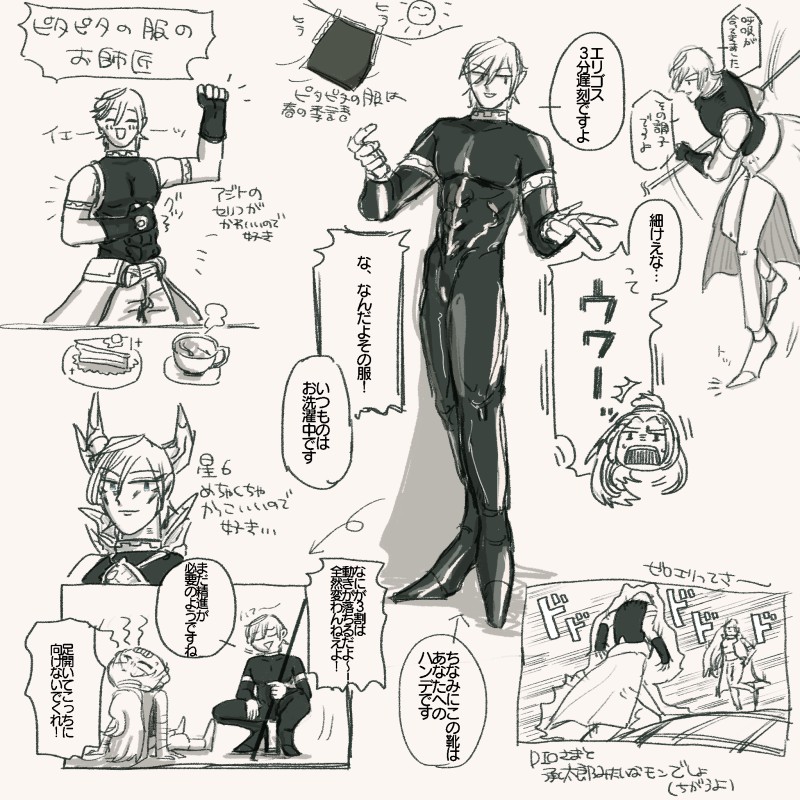 ピタピタの服の
お師匠
イエーーッ
アジトの
セリフが
かわいいので
好き
ピタピタの服は
春の季語
エリゴス
3分遅刻ですよ
呼吸が
合ってきました
その調子
ですよ
細けえな…
って
ウワーッ
な、なんだよその服！
いつものは
お洗濯中です
星6
めちゃくちゃ
かっこいいので
好き…
なにが3割は
動きが落ちるだよ〜
全然変わんねえよ！
まだ精進が
必要のようですね
足開いてこっちに
向けないでくれ！
ちなみにこの靴は
あなたへの
ハンデです
ゼロエリってさ〜
ドド
ドド
ドド
DIOさまと
承太郎みたいなモンでしょ
（ちがうよ）